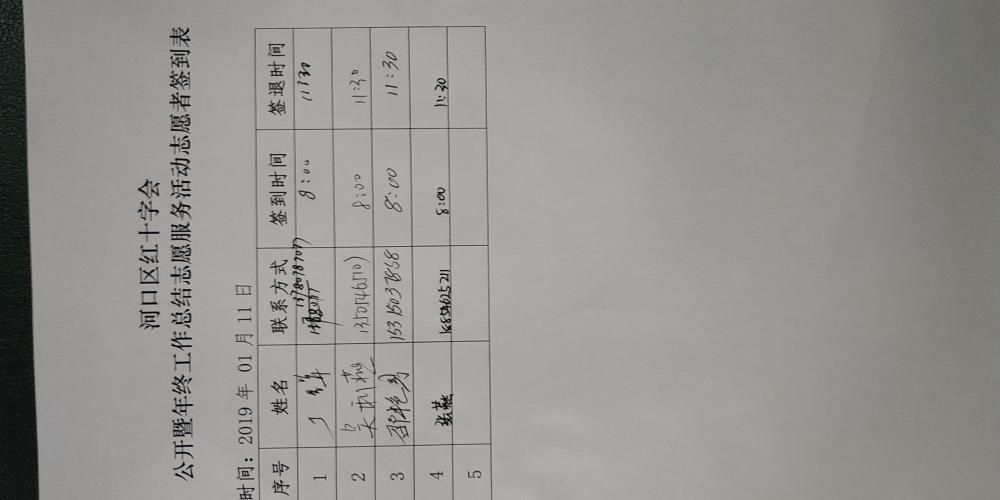 河口区红十字会
公开暨年终工作总结志愿服务活动志愿者签到表
时间：2019 年 01 月 11 日
序号 姓名 联系方式 签到时间 签退时间
1 13780787077 8:00 11:30
2 8:00 11:30
3 15315037858 8:00 11:30
4 张燕 8:00 11:30
5